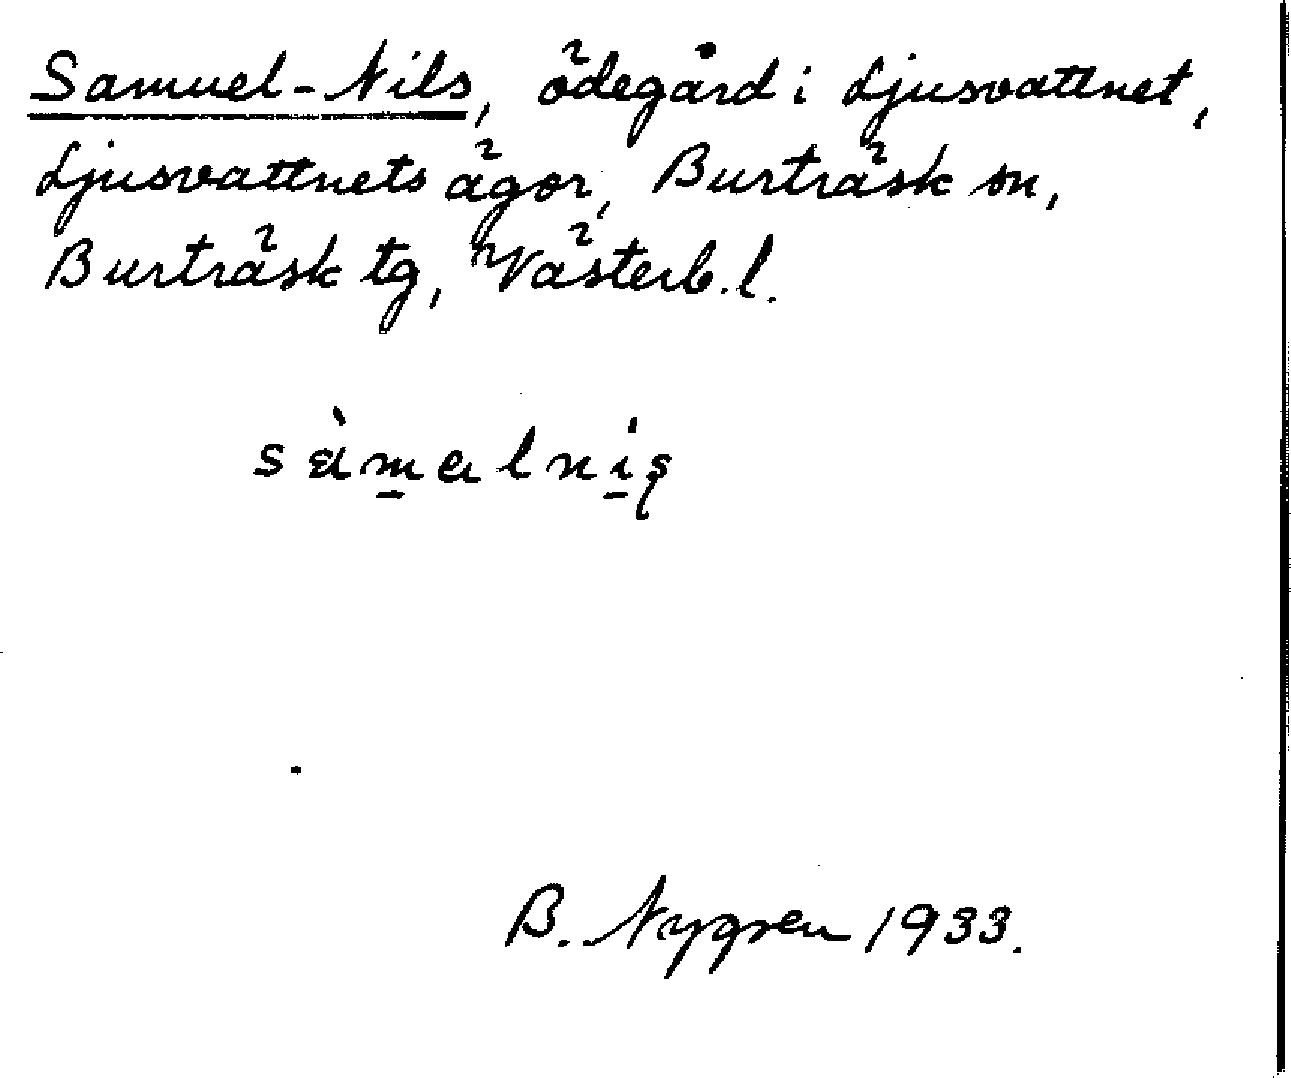 Samuel-Nils, ödegård i Ljusvattnet,
Ljusvattnets ägor, Burträsk sn,
Burträsk tg, Västerb. l.
sàm̲alni̲ș
B. Nygren 1933.